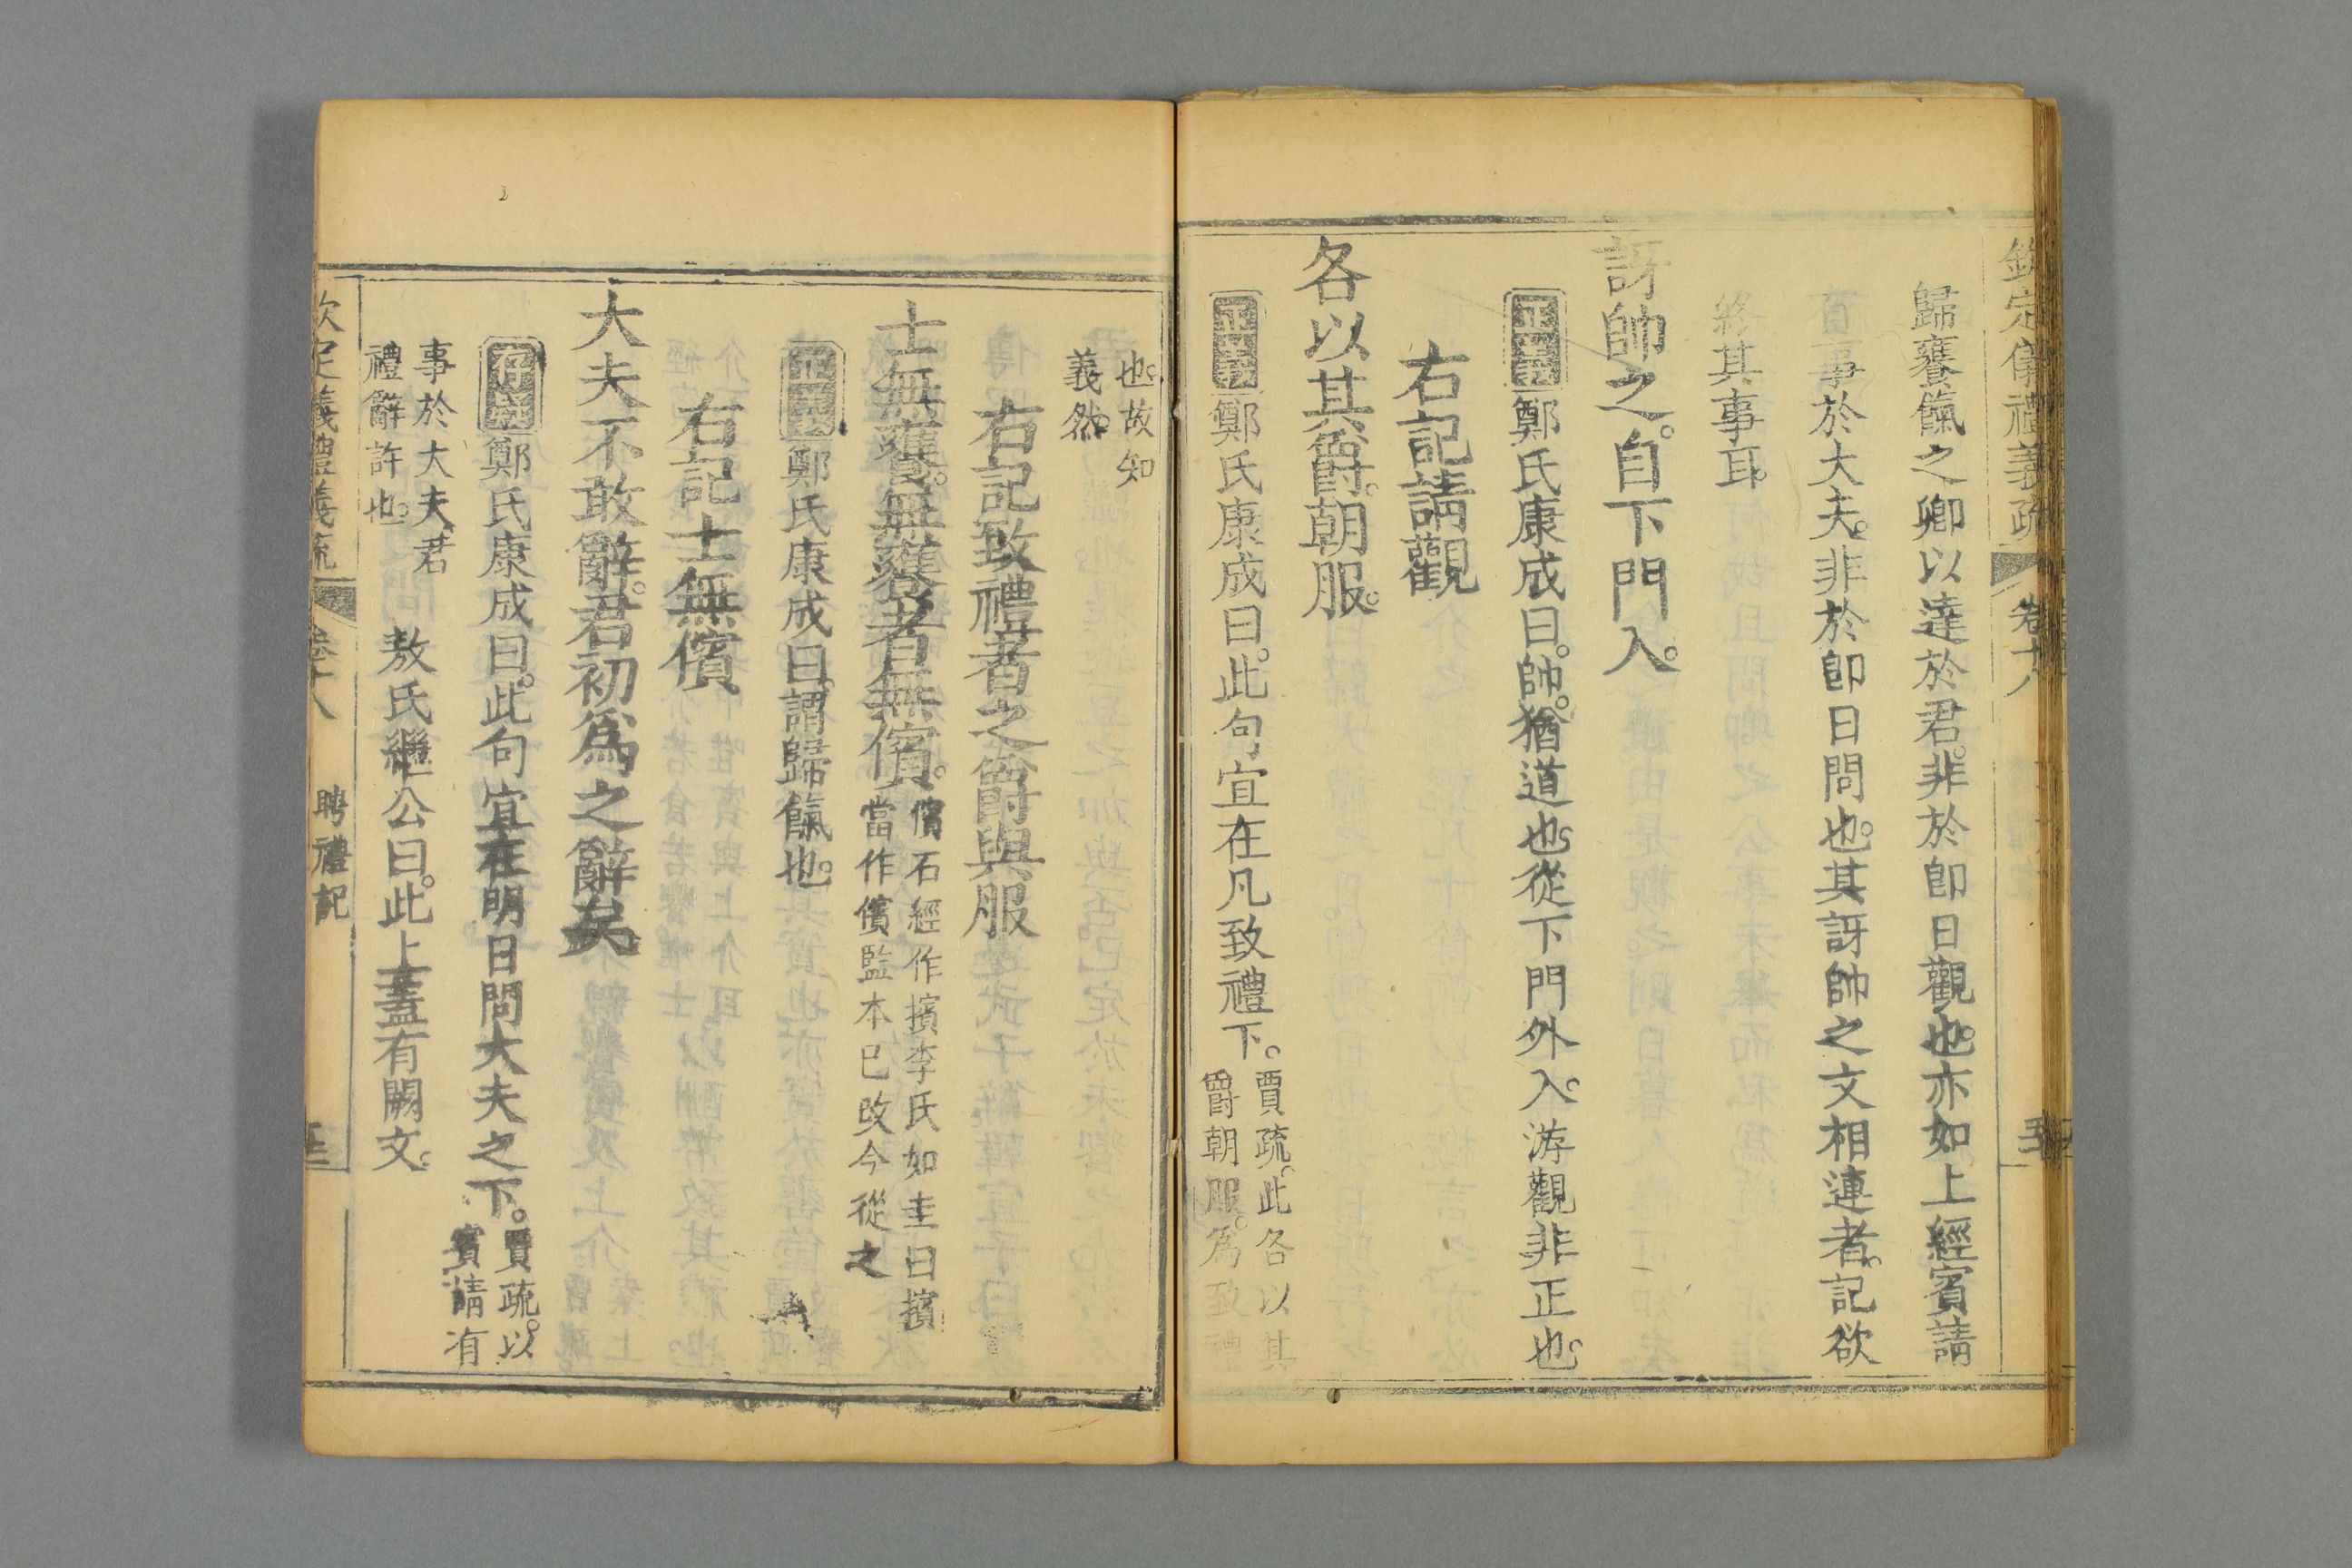 欽定儀禮義疏 卷十八
歸饔餼之卿以達於君。非於卽日觀也。亦如上經賓請
有事於大夫。非於卽日問也。其訝帥之文相連者。記欲
終其事耳。
訝帥之。自下門入。
正義鄭氏康成曰。帥。猶道也。從下門外入。游觀非正也。
右記請觀
各以其爵。朝服。
正義鄭氏康成曰。此句宜在凡致禮下。賈疏。此各以其
爵朝服。爲致禮
也。故知
義然。
右記致禮者之爵與服
士無饔。無饔者無儐。儐石經作擯李氏如圭曰擯
當作儐監本已改今從之
正義鄭氏康成曰。謂歸餼也。
右記士無儐
大夫不敢辭。君初爲之辭矣
存疑鄭氏康成曰。此句宜在明日問大夫之下。賈疏。以
賓請有
事於大夫。君
禮辭許也。
敖氏繼公曰。此上蓋有闕文。
欽定儀禮義疏 卷十八 聘禮記